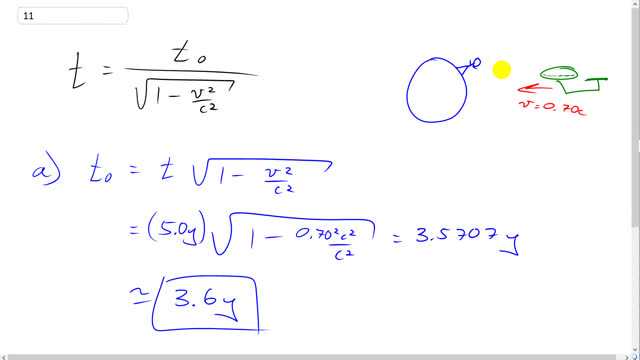 11
t = t₀ / √(1 − v²/c²)
v = 0.70c
a) t₀ = t √(1 − v²/c²)
= (5.0y) √(1 − 0.70²c²/c²) = 3.5707y
≃ 3.6y